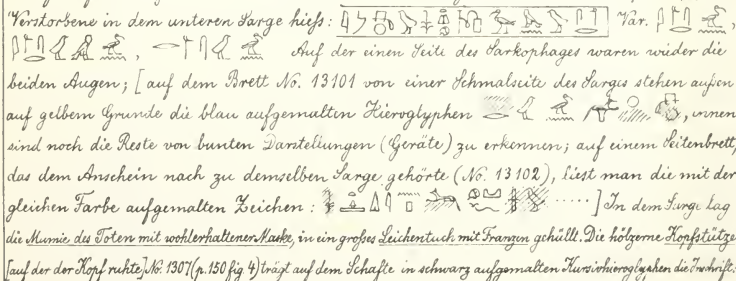 Verstorbene in dem unteren Sarge hieß: Var.
Auf der einen Seite des Sarkophages waren wieder die
beiden Augen; [auf dem Brett No. 13101 von einer Schmalseite des Sarges stehen außen
auf gelbem Grunde die blau aufgemalten Hieroglyphen , innen
sind noch die Reste von bunten Darstellungen (Geräte) zu erkennen; auf einem Seitenbrett,
das dem Anschein nach zu demselben Sarge gehörte (No. 13102), liest man die mit der
gleichen Farbe aufgemalten Zeichen : ······] In dem Sarge lag
die Mumie des Toten mit wohlerhaltener Maske, in ein großes Leichentuch mit Franzen gehüllt. Die hölzerne Kopfstütze
[auf der der Kopf ruhte] No. 1307 (p. 150 fig 4) trägt auf dem Schafte in schwarz aufgemalten Kursivhieroglyphen die Inschrift: